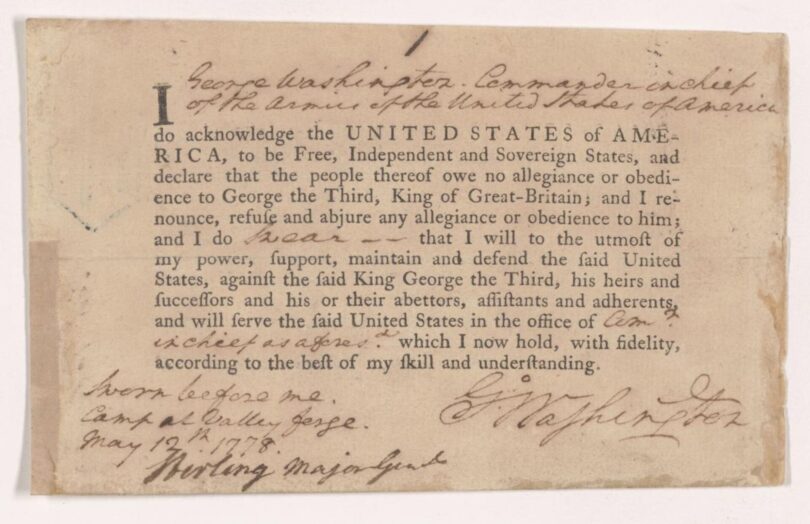 1
George Washington. Commander in chief
of the Armies of the United States of America
I
do acknowledge the UNITED STATES of AME-
RICA, to be Free, Independent and Sovereign States, and
declare that the people thereof owe no allegiance or obedi-
ence to George the Third, King of Great-Britain; and I re-
nounce, refuſe and abjure any allegiance or obedience to him;
and I do swear —— that I will to the utmoſt of
my power, ſupport, maintain and defend the ſaid United
States, againſt the ſaid King George the Third, his heirs and
ſucceſſors and his or their abettors, aſſiſtants and adherents,
and will ſerve the ſaid United States in the office of Com.r
in chief as afores.d which I now hold, with fidelity,
according to the beſt of my ſkill and underſtanding.
Sworn before me.
Camp at Valley forge.
May 12th 1778.
Stirling Major Genl
Go Waſhington